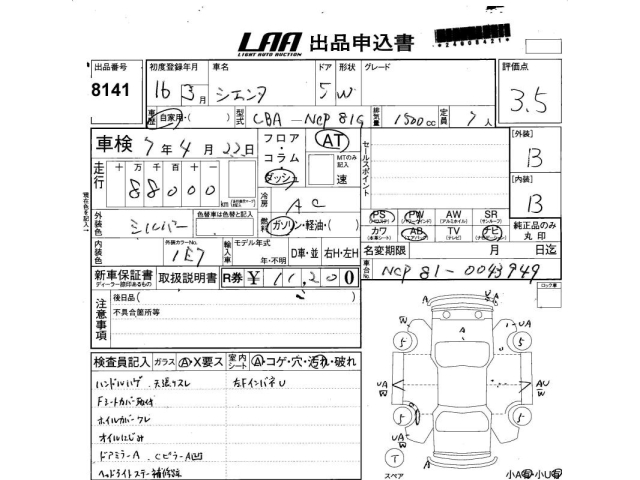 LAA 出品申込書
LIGHT AUTO AUCTION
*24000421*
出品番号 初度登録年月 車名 ドア 形状 グレード 評価点
8141 16 3月 シエンタ 5 W 3.5
車歴 自家用・( ) 型式 CBA-NCP81G 排気量 1500cc 定員 7人
車検 7年4月22日 フロア・コラム・ダッシュ AT MTのみ記入 速 セールスポイント [外装] B
走行 十万 万 千 百 十 km
88000
冷房 AC [内装] B
現在色を記入
外装色 シルバー 色替車は色替と記入 燃料 ガソリン・軽油・( )
PS PW AW SR 純正品のみ丸印
(パワステ) (パワーウインド) (アルミホイル) (サンルーフ)
カワ AB TV ナビ
(本革シート) (エアバック) (テレビ) (ナビゲーション)
内装色 外装カラーNo. 1E7 輸入車 モデル年式 年・不明 D車・並 右H・左H 名変期限 月 日迄
新車保証書 取扱説明書 R券 ¥ 11,200 車台No. NCP81-0043949
ディーラー捺印あるもの
注意事項 後日品( )
不具合箇所等
ロック車
検査員記入 ガラス A・X要ス 室内シート A・コゲ・穴・汚れ・破れ
ハンドルハゲ・天張リスレ 左Fインパネ U
Fシートカバー取付
ホイルカバークレ
オイルにじみ
ドアミラーA CピラーA凹
ヘッドライトステー補修跡
A A
A UA
W W
5 5
A
UA AU
W W
5 5
UA A
W
T A
スペア 小A・小U